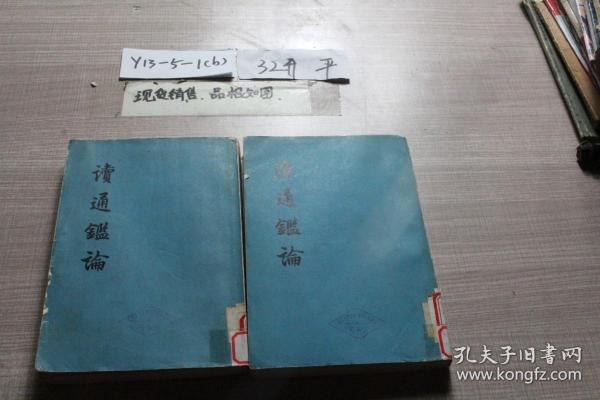 Y13-5-1(b)
32开 平
现货销售、品相如图.
讀通鑑論
讀通鑑論
孔夫子旧书网
www.kongfz.com